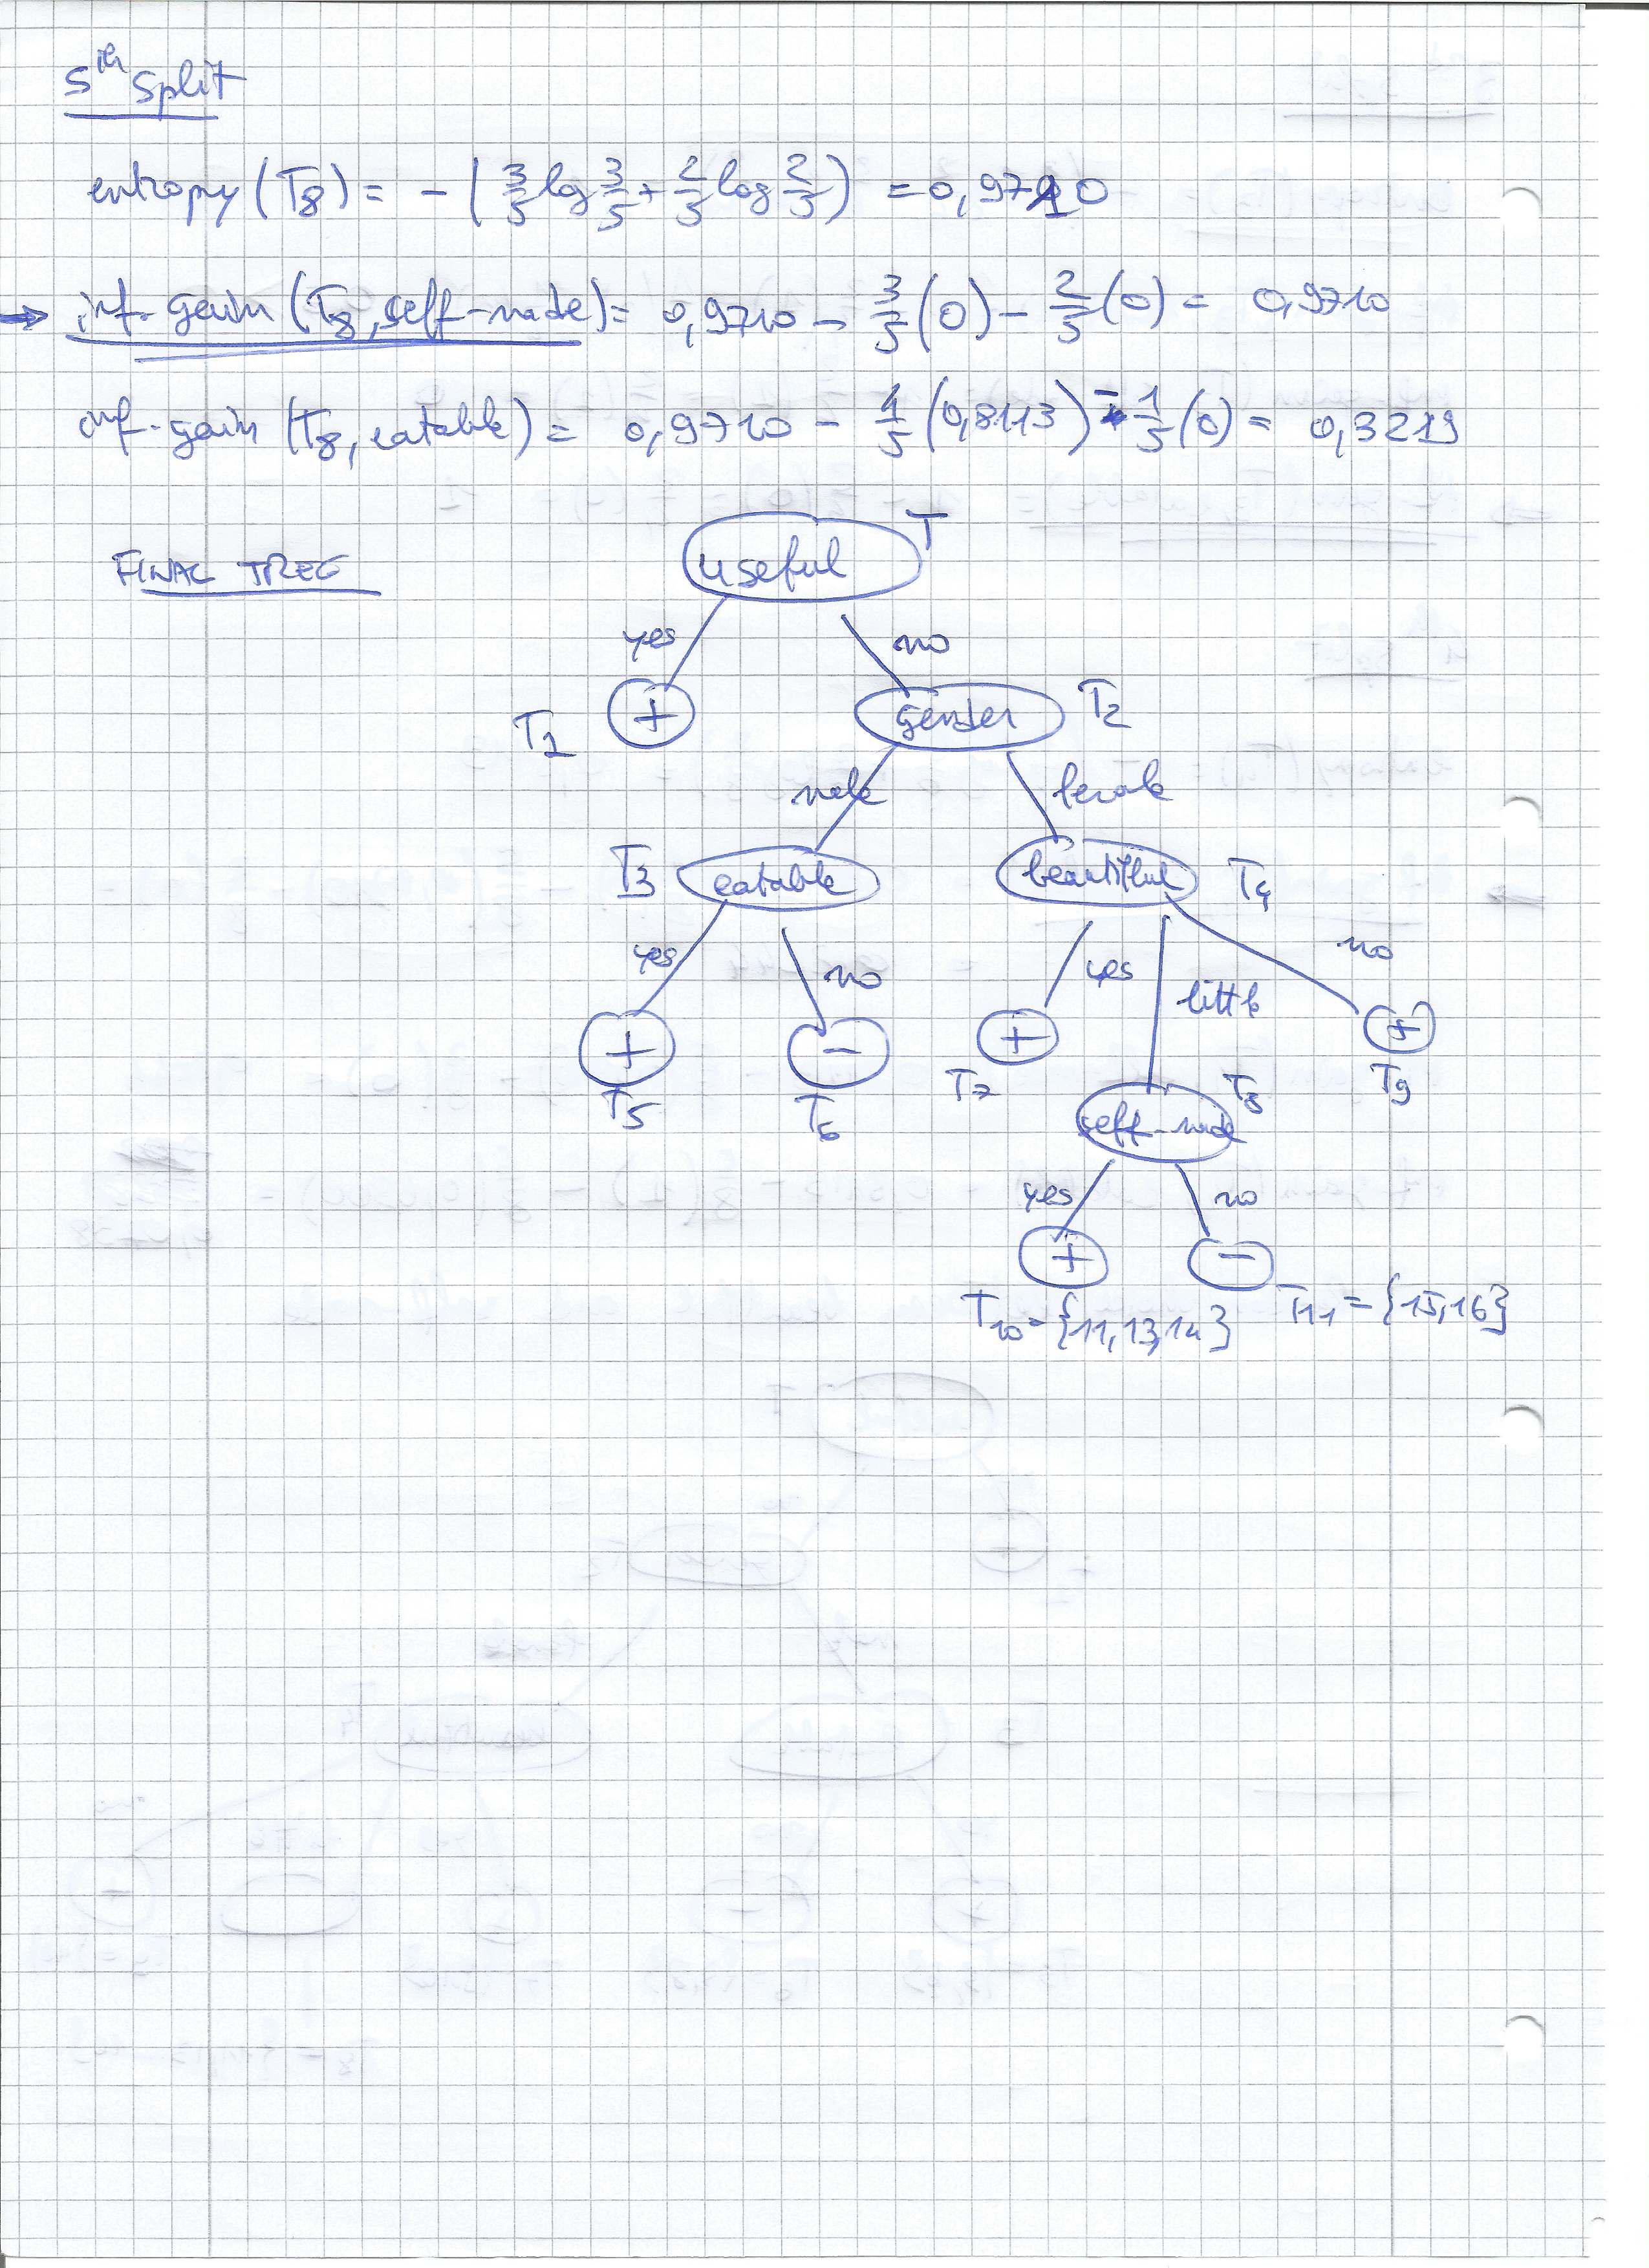 5th split
entropy (T8) = - ( 3/5 log 3/5 + 2/5 log 2/5 ) = 0,9710
→ inf-gain (T8, self-made) = 0,9710 - 3/5 (0) - 2/5 (0) = 0,9710
inf-gain (T8, eatable) = 0,9710 - 4/5 (0,8113) - 1/5 (0) = 0,3219
FINAL TREE
useful T
yes no
T1 + gender T2
male female
T3 eatable beautiful T4
yes no yes little no
+ - + +
T5 T6 T7 T8 T9
self-made
yes no
+ -
T10 = {11,13,14} T11 = {15,16}